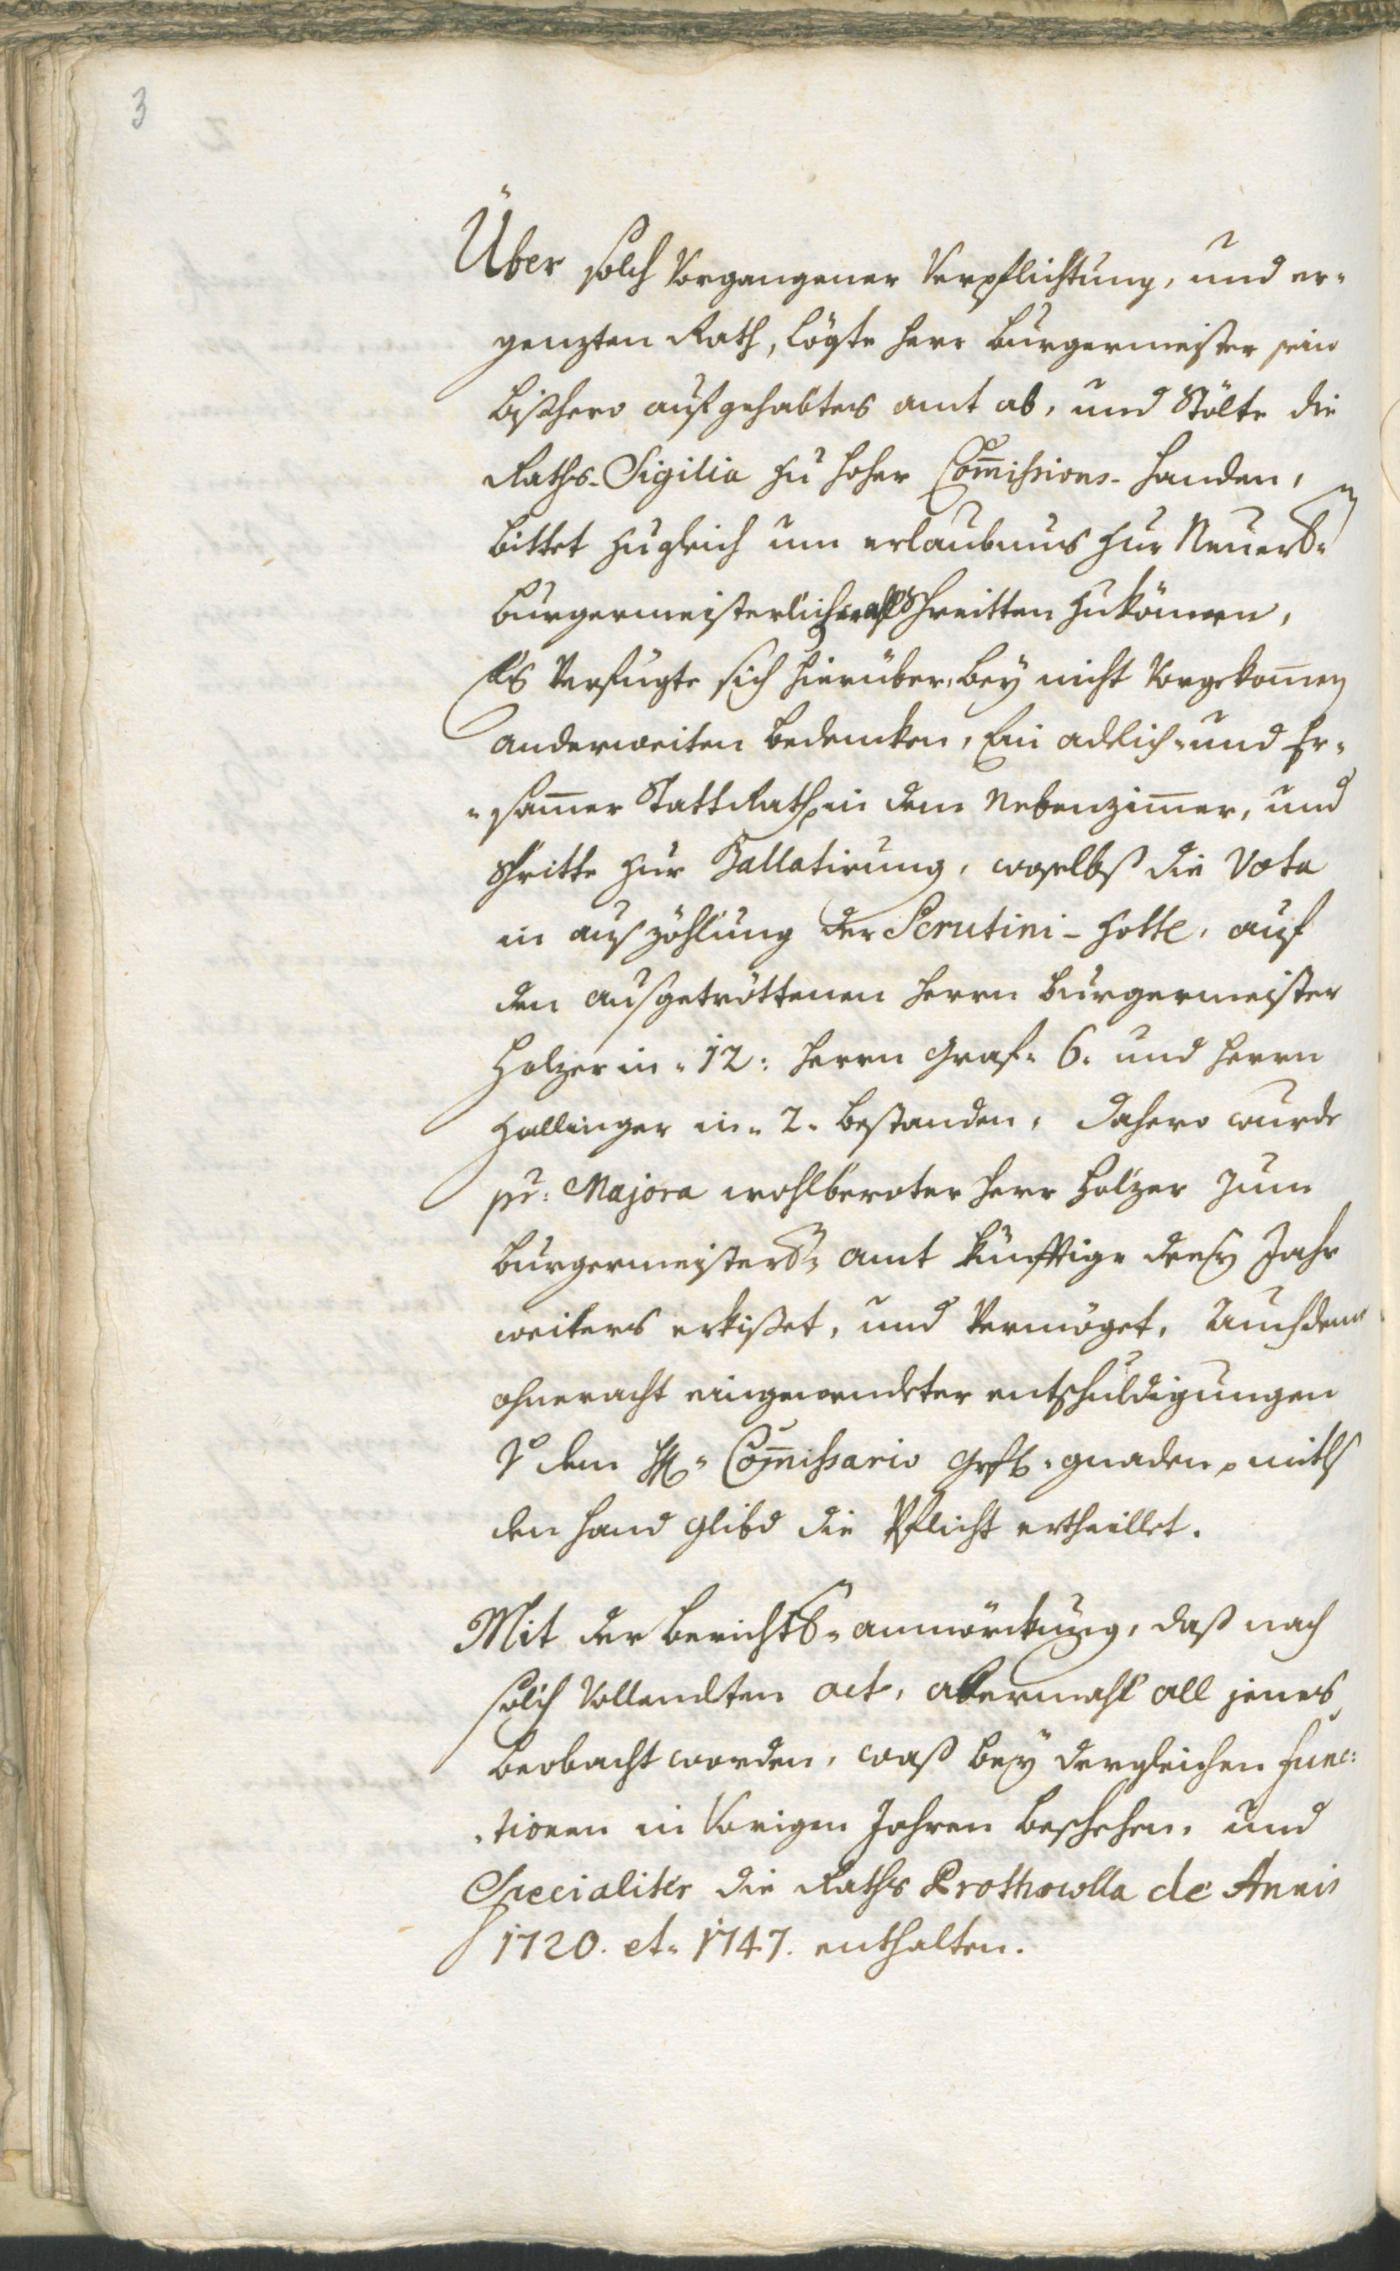 3
Über solch Vorgangener Verpflichtung, und er-
genzten Rath, lögte herr burgermeister sein
bißhero aufgehabtes amt ab, und stölte die
Raths-Sigilia zu hoher Com̄issions-handen,
bittet zugleich um erlaubnus zur Neuer
burgermeisterlicher schreitten zukönnen,
Es Verfügte sich hierüber, bey nicht Vorgekom̄en
anderweiten bedencken, Ein adelich- und Er-
-sam̄er Statt Rath in dem Nebenzim̄er, und
schritte zur Ballatirung, woselbst die Vota
in auszöhlung der Scrutini- auf
den ausgetröttenen herrn burgermeister
Holzer in 12: herrn Graf 6. und herrn
Hallinger in 2. bestanden, dahero wurde
pr: Majora wohlberoter herr Holzer zum
burgermeisters amt künfftige drey Jahr
weiters erkißet, und Vermöget, Auch deme
ohneracht eingewendeter entschuldigungen
V dem H: Com̄issario grfl: gnaden, mitls
den hand glibd die Pflicht ertheillet.
Mit der berichts anmörckung, daß nach
solch Vollendten act, abermahl all jenes
beobacht worden, waß bey dergleichen func-
-tionen in Vorigen Jahren beschehen, und
Specialiter die Raths Prothocolla de Annis
1720. et 1747. enthalten.